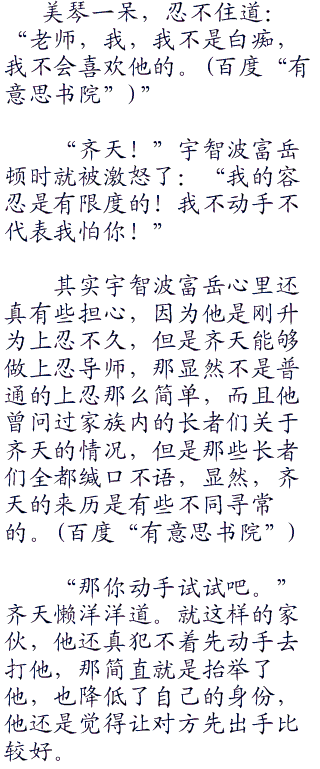 美琴一呆，忍不住道：
“老师，我，我不是白痴，
我不会喜欢他的。(百度“有
意思书院”)”
“齐天！”宇智波富岳
顿时就被激怒了：“我的容
忍是有限度的！我不动手不
代表我怕你！”
其实宇智波富岳心里还
真有些担心，因为他是刚升
为上忍不久，但是齐天能够
做上忍导师，那显然不是普
通的上忍那么简单，而且他
曾问过家族内的长者们关于
齐天的情况，但是那些长者
们全都缄口不语，显然，齐
天的来历是有些不同寻常
的。(百度“有意思书院”)
“那你动手试试吧。”
齐天懒洋洋道。就这样的家
伙，他还真犯不着先动手去
打他，那简直就是抬举了
他，也降低了自己的身份，
他还是觉得让对方先出手比
较好。